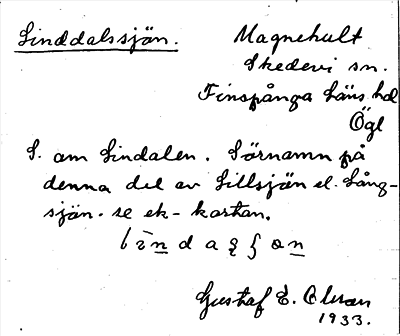 Linddalssjön.
Magnehult
Skedevi sn.
Finspånga läns hd
Ögl
S. om Lindalen. Särnamn på
denna del av Lillsjön el. Lång-
sjön. se ek-kartan.
Gustaf E. Olsson
1933.